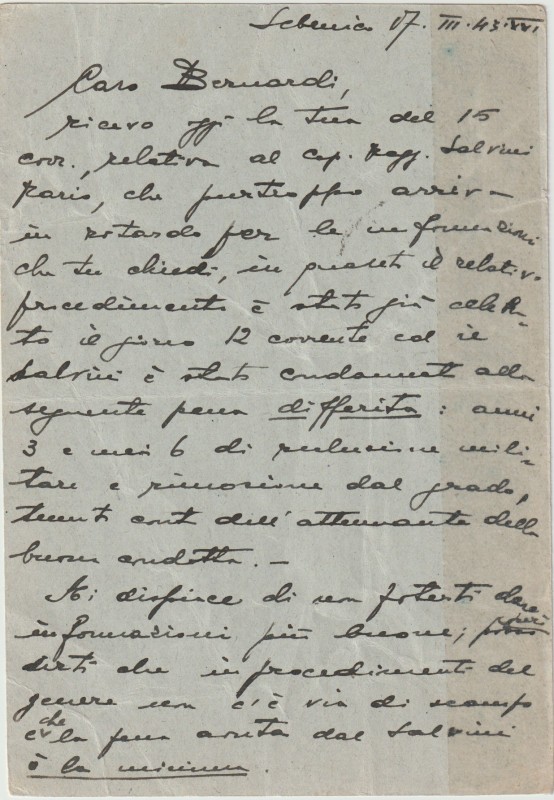 Sebenico 17. III. 43. XXI
Caro Bernardi,
ricevo oggi la tua del 15
corr., relativa al cap. magg. Salvini
Mario, che purtroppo arriva
in ritardo per le informazioni
che tu chiedi, in quanto il relativo
procedimento è stato già celebra-
to il giorno 12 corrente ed il
Salvini è stato condannato alla
seguente pena differita: anni
3 e mesi 6 di reclusione mili-
tare e rimozione dal grado,
tenuto conto dell'attenuante della
buona condotta. —
Mi dispiace di non poterti dare
informazioni più buone;
dirti che in procedimenti del
genere non c'è via di scampo
e che la pena avuta dal Salvini
è la minima.